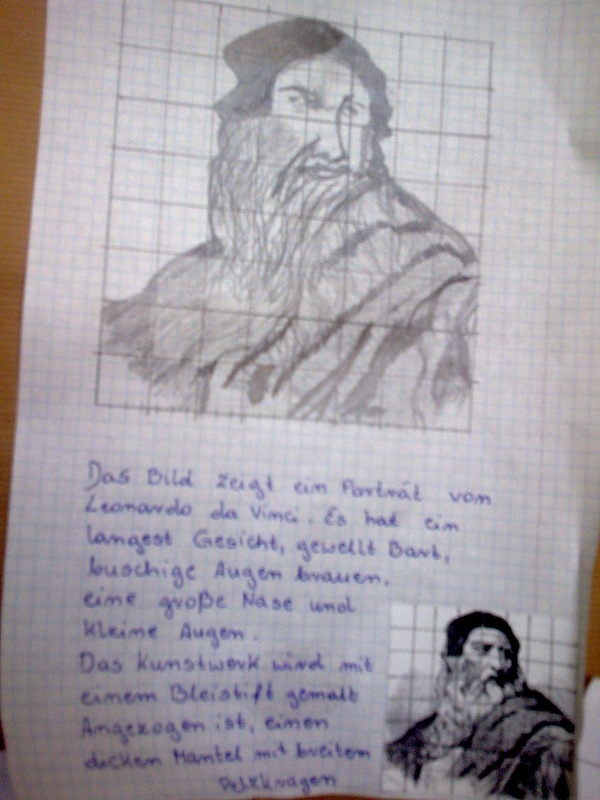 Das Bild zeigt ein Porträt von
Leonardo da Vinci. Es hat ein
langest Gesicht, gewellt Bart,
buschige Augen brauen,
eine große Nase und
kleine Augen.
Das Kunstwerk wird mit
einem Bleistift gemalt
Angezogen ist, einen
dicken Mantel mit breitem
Pelzkragen